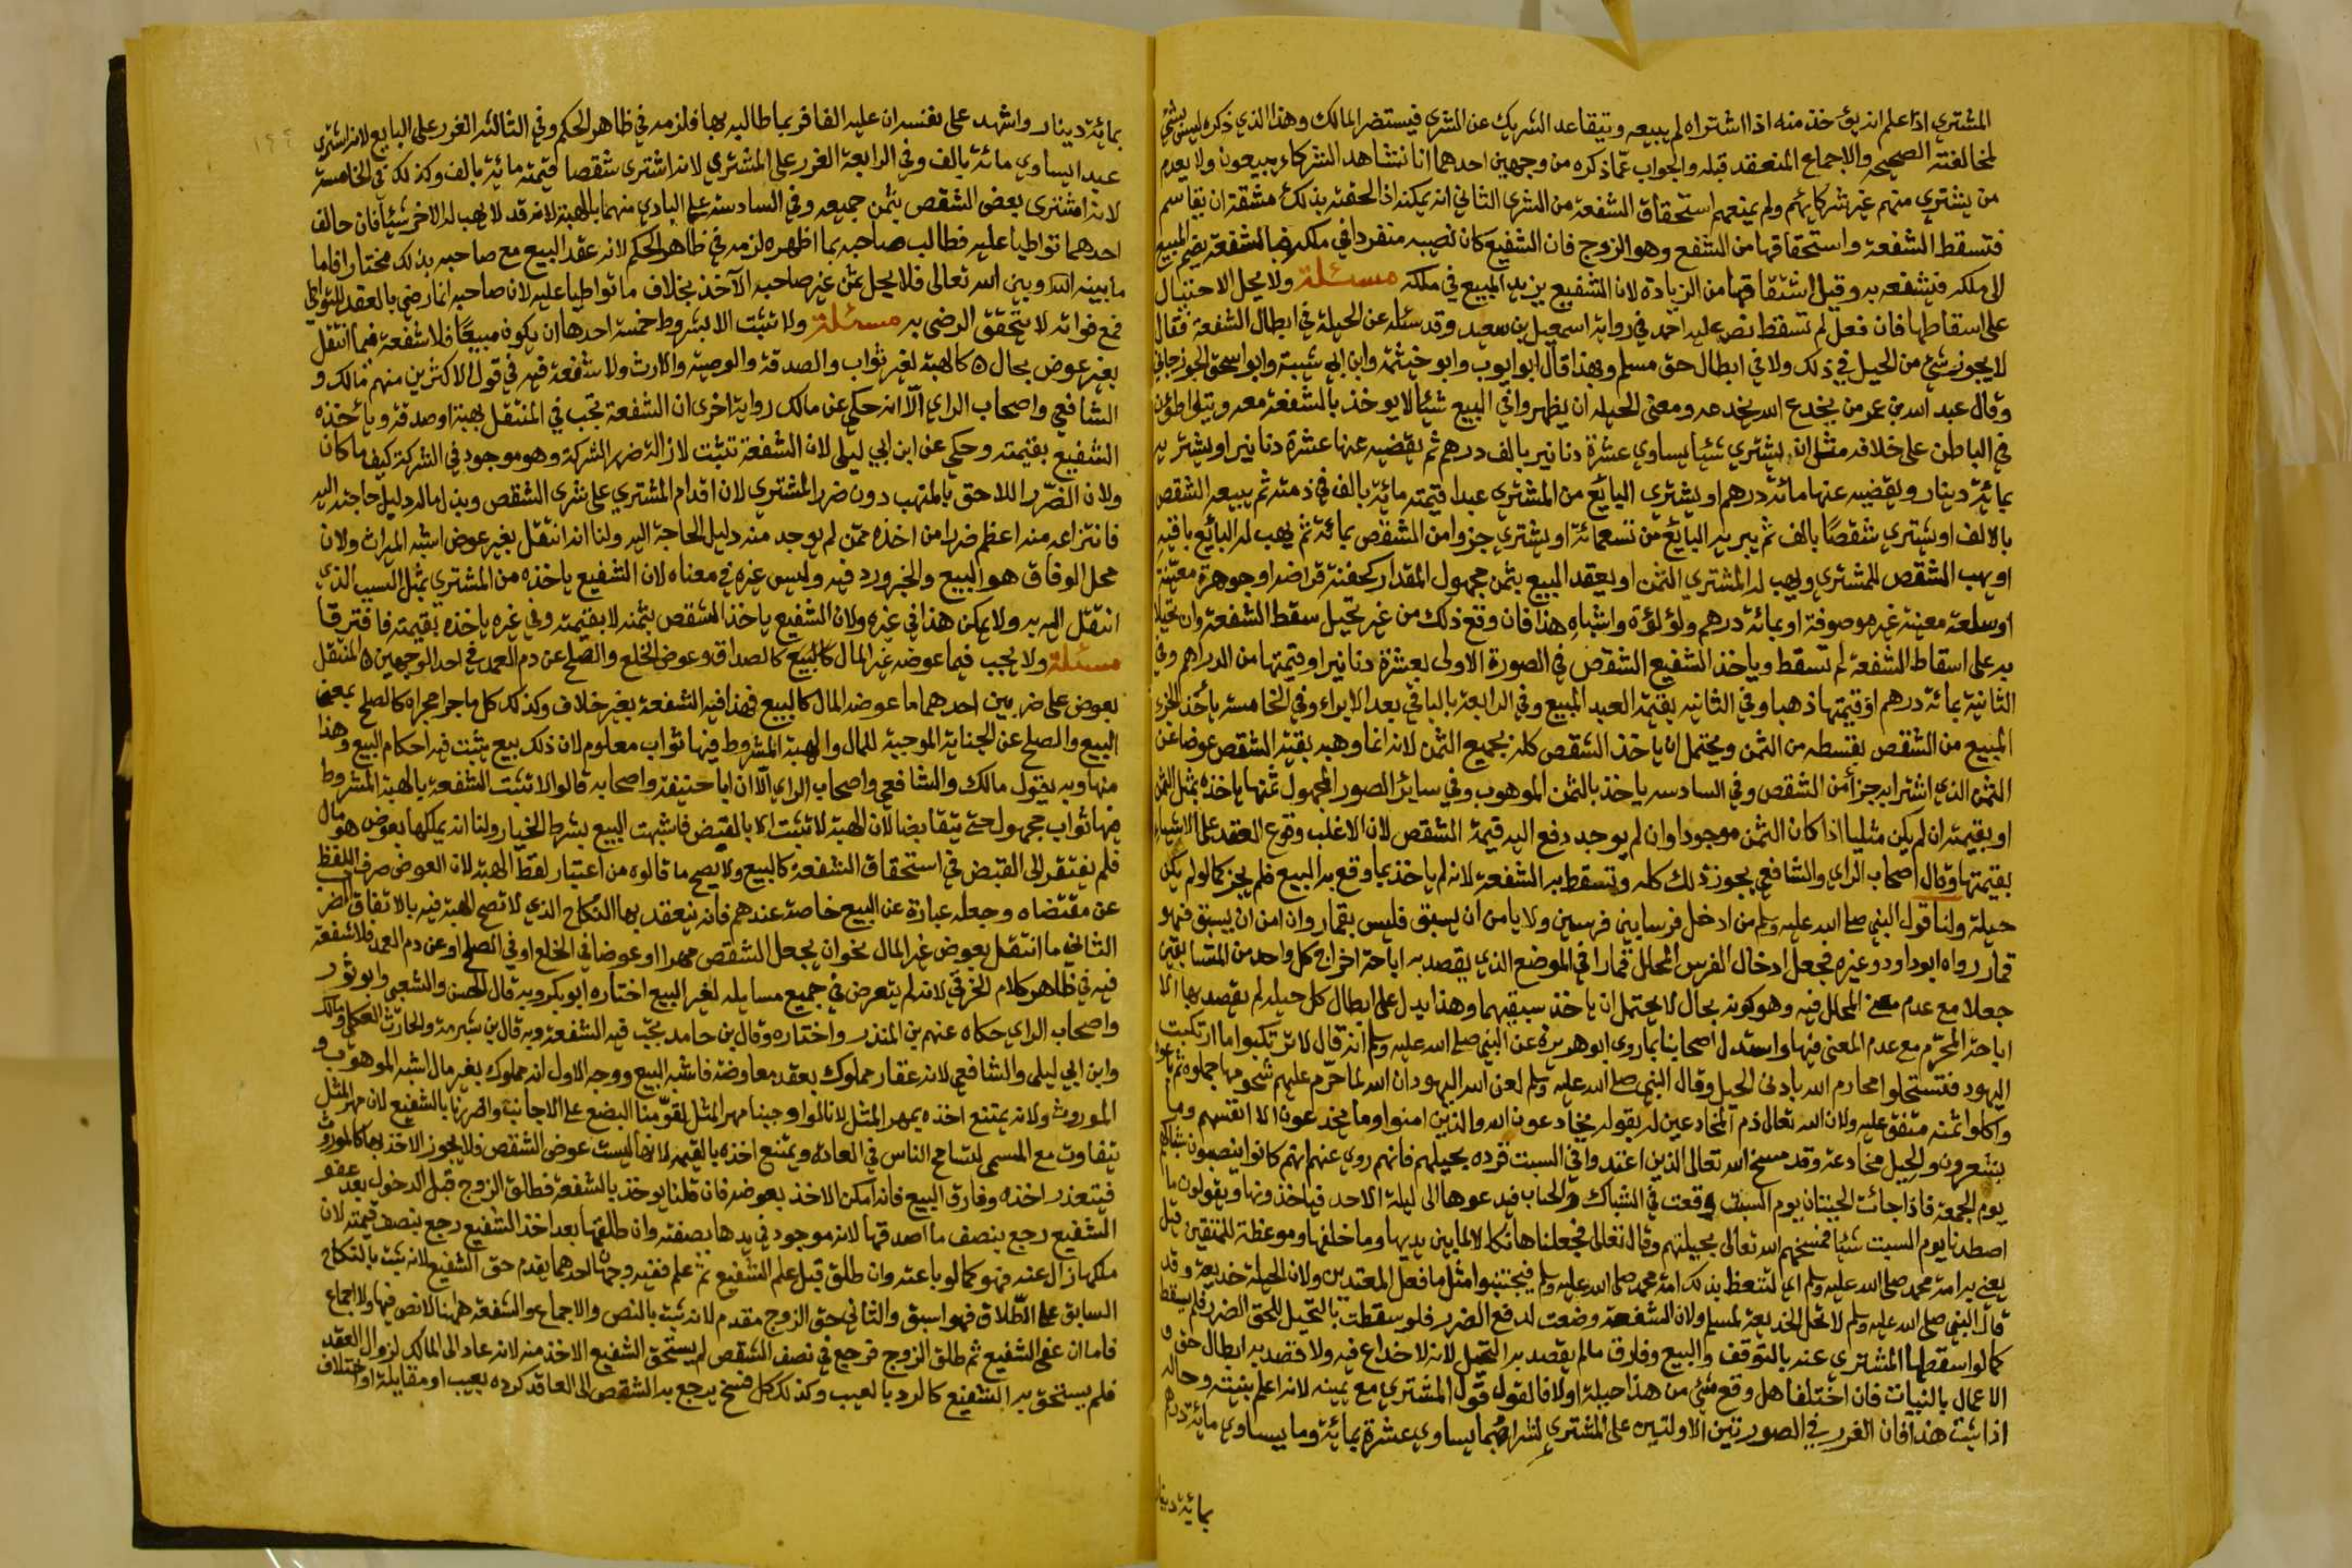 المشتري اذا علم انه يؤخذ منه اذا اشتراه لم يبيعه ويتقاعد الشريك عن الشرى فيستضر المالك وهذا الذي ذكره ليس بشئ
لمخالفته الصحيحه والاجماع المنعقد قبله والجواب عما ذكره من وجهين احدهما انا نشاهد الشركاء يبيعون ولا يعدم
من يشترى منهم غير شركايهم ولم يمنعهم استحقاق الشفعة من الشرى الثاني انه يمكنه اذا لحقته بذلك مشقة ان يقاسم
فتسقط الشفعة واشتقاقها من الشفع وهو الزوج فان الشفيع كان نصيبه منفردا في ملكه فبالشفعة يضم المبيع
الى ملكه فيشفعه به وقيل اشتقاقها من الزيادة لان الشفيع يزيد المبيع في ملكه مسئلة ولا يحل الاحتيال
على اسقاطها فان فعل لم تسقط نص عليه احمد في رواية اسمعيل بن سعيد وقد سئله عن الحيلة في ابطال الشفعة فقال
لا يجوز شئ من الحيل في ذلك ولا في ابطال حق مسلم وبهذا قال ابو ايوب وابو خيثمة وابن ابي شيبة وابو اسحق الجوزجاني
وقال عبد الله بن عمر من يخدع الله يخدعه ومعنى الحيله ان يظهروا في البيع شيئا لا يوخذ بالشفعة معه ويتواطؤن
في الباطن على خلافه مثل ان يشتري شيئا يساوي عشرة دنانير بالف درهم ثم يقضيه عنها عشرة دنانير او يشتريه
بمائة دينار ويقضيه عنها مائة درهم او يشترى البائع من المشترى عبدا قيمته مائة بالف في ذمته ثم يبيعه الشقص
بالالف او يشتري شقصًا بالف ثم يبريه البائع من تسعمائة او يشتري جزوا من الشقص بمائة ثم يهب له البائع باقيه
او يهب الشقص للمشترى ويهب له المشترى الثمن او يعقد البيع بثمن مجهول المقدار كحفنة قراضه او جوهرة معينة
او سلعة معينة غير موصوفة او بمائة درهم ولؤلؤة واشباه هذا فان وقع ذلك من غير تحيل سقط الشفعة وان تحيلا
به على اسقاط الشفعة لم تسقط وياخذ الشفيع الشقص في الصورة الاولى بعشرة دنانير او قيمتها من الدراهم وفي
الثانية بمائة درهم او قيمتها ذهبا وفي الثالثه بقيمة العبد المبيع وفي الرابعة بالباقي بعد الابراء وفي الخامسه ياخذ الجزء
المبيع من الشقص بقسطه من الثمن ويحتمل ان ياخذ الشقص كله بجميع الثمن لانه انما وهبه بقية الشقص عوضا عن
الثمن الذي اشترا به جزأ من الشقص وفي السادسه ياخذ بالثمن الموهوب وفي سائر الصور المجهول ثمنها ياخذه بمثل الثمن
او بقيمته ان لم يكن مثليا اذا كان الثمن موجودا وان لم يوجد دفع اليه قيمة الشقص لان الاغلب وقوع العقد على الاشياء
بقيمتها وقال اصحاب الراي والشافعي يجوز ذلك كله وتسقط به الشفعة لانه لم ياخذ بما وقع به البيع فلم يجز كما لو لم يكن
حيلة ولنا قول النبي صلى الله عليه وسلم من ادخل فرسا بين فرسين ولا يامن ان يسبق فليس بقمار وان امن ان يسبق فهو
قمار رواه ابو داود وغيره فجعل ادخال الفرس المحلل قمارا في الموضع الذي يقصد به اباحة اخراج كل واحد من المتسابقين
جعلا مع عدم معنى المحلل فيه وهو كونه بحال لا يحتمل ان ياخذ سبقيهما وهذا يدل على ابطال كل حيله لم يقصد بها الا
اباحة المحرم مع عدم المعنى فيها واستدل اصحابنا بما روى ابو هريرة عن النبي صلى الله عليه وسلم انه قال لا ترتكبوا ما ارتكبت
اليهود فتستحلوا محارم الله بادنى الحيل وقال النبي صلى الله عليه وسلم لعن الله اليهود ان الله لما حرم عليهم شحومها جملوه ثم باعوه
واكلوا ثمنه متفق عليه ولان الله تعالى ذم المخادعين له بقوله يخادعون الله والذين امنوا وما يخدعون الا انفسهم وما
يشعرون والحيل مخادعة وقد مسخ الله تعالى الذين اعتدوا في السبت قرده بحيلهم فانهم روي عنهم انهم كانوا ينصبون شباكهم
يوم الجمعة فاذا جائت الحيتان يوم السبت وقعت في الشباك فيدعوها الى ليلة الاحد فياخذونها ويقولون ما
اصطدنا يوم السبت شيئا فمسخهم الله تعالى بحيلتهم وقال تعالى فجعلناها نكالا لما بين يديها وما خلفها وموعظة للمتقين قيل
يعنى به امة محمد صلى الله عليه وسلم اي لتتعظ بذلك امة محمد صلى الله عليه وسلم فيجتنبوا مثل ما فعل المعتدين ولان الحيلة خديعة وقد
قال النبي صلى الله عليه وسلم لا تحل الخديعة لمسلم ولان الشفعة وضعت لدفع الضرر فلو سقطت بالتحيل للحق الضرر فلم يسقط
كما لو اسقطها المشتري عنه بالتوقف والبيع وفارق ما لم يقصد به التحيل لانه لا خداع فيه ولا قصد به ابطال حق و
الاعمال بالنيات فان اختلفا هل وقع شئ من هذا حيلة او لا فالقول قول المشترى مع يمينه لانه اعلم بنيته وحاله
اذا ثبت هذا فان الغرر في الصورتين الاولتين على المشتري لشراه ما يساوي عشرة بمائة وما يساوي مائة درهم
بمائة دينار
بمائة دينار واشهد على نفسه ان عليه الفا فربما طالبه بها فلزمه في ظاهر الحكم وفي الثالثه الغرر على البايع لانه اشترى
عبدا يساوي مائة بالف وفي الرابعة الغرر على المشترى لانه اشترى شقصا قيمته مائة بالف وكذلك في الخامسة
لانه اشترى بعض الشقص بثمن جميعه وفي السادسة على البادي منهما بالهبة لانه قد لا يهب له الاخر شيئا فان خالف
احدهما تواطيا عليه فطالب صاحبه بما اظهره لزمه في ظاهر الحكم لانه عقد البيع مع صاحبه بذلك مختارا فاما
ما بينه وبين الله تعالى فلا يحل لمن غر صاحبه الاخذ بخلاف ما تواطيا عليه لان صاحبه انما رضي بالعقد للتواطي
فمع فواته لا يتحقق الرضى به مسئلة ولا تثبت الا بشروط خمسة احدها ان يكون مبيعًا فلا شفعة فيما انتقل
بغير عوض بحال كالهبة لغير ثواب والصدقة والوصية والارث ولا شفعة فيه في قول الاكثرين منهم مالك و
الشافعي واصحاب الراي الا انه حكي عن مالك رواية اخرى ان الشفعة تجب في المنتقل بهبة او صدقة وياخذه
الشفيع بقيمته وحكي عن ابن ابي ليلى لان الشفعة تثبت لازالة ضرر الشركة وهو موجود في الشركة كيف ما كان
ولان الضرر اللاحق بالمتهب دون ضرر المشترى لان اقدام المشتري على شرى الشقص وبذل ماله دليل حاجته اليه
فانتزاعه منه اعظم ضررا من اخذه ممن لم يوجد منه دليل الحاجة اليه ولنا انه انتقل بغير عوض اشبه الميراث ولان
محل الوفاق هو البيع والخبر ورد فيه وليس غيره في معناه لان الشفيع ياخذه من المشتري بمثل السبب الذي
انتقل اليه به ولا يمكن هذا في غيره ولان الشفيع ياخذ الشقص بثمنه لا بقيمته وفي غيره ياخذه بقيمته فافترقا
مسئلة ولا يجب فيما عوضه غير المال كالبيع كالصداق وعوض الخلع والصلح عن دم العمد في احد الوجهين المنتقل
بعوض على ضربين احدهما ما عوضه المال كالبيع فهذا فيه الشفعة بغير خلاف وكذلك كل ما جرا مجراه كالصلح بمعنى
البيع والصلح عن الجناية الموجبة للمال والهبة المشروط فيها ثواب معلوم لان ذلك بيع يثبت فيه احكام البيع وهذا
منها وبه يقول مالك والشافعي واصحاب الراي الا ان ابا حنيفة واصحابه قالوا لا تثبت الشفعة بالهبة المشروط
فيها ثواب مجهول حتى يتقابضا لان الهبة لا تثبت الا بالقبض فاشبهت البيع بشرط الخيار ولنا انه يملكها بعوض هو مال
فلم يفتقر الى القبض في استحقاق الشفعة كالبيع ولا يصح ما قالوه من اعتبار لفظ الهبة لان العوض صرف اللفظ
عن مقتضاه وجعله عبارة عن البيع خاصة عندهم فانه ينعقد بها النكاح الذي لا تصح الهبة فيه بالاتفاق الضرب
الثاني ما انتقل بعوض غير المال نحو ان يجعل الشقص مهرا او عوضا في الخلع او في الصلح او عن دم العمد فلا شفعة
فيه في ظاهر كلام الخرقي لانه لم يتعرض في جميع مسايله لغير البيع اختاره ابو بكر وبه قال الحسن والشعبي وابو ثور
واصحاب الراي حكاه عنهم بن المنذر واختاره وقال بن حامد تجب فيه الشفعة وبه قال بن شبرمة والحارث العكلي ومالك
وابن ابي ليلى والشافعي لانه عقار مملوك بعقد معاوضة فاشبه البيع ووجه الاول انه مملوك بغير مال اشبه الموهوب و
الموروث ولانه يمتنع اخذه بمهر المثل لاننا لو اوجبنا مهر المثل لقومنا البضع على الاجانب واضررنا بالشفيع لان مهر المثل
يتفاوت مع المسمى لتسامح الناس في العادة ويمتنع اخذه بالقيمه لانها ليست عوض الشقص فلا يجوز الاخذ بها كالموروث
فيتعذر اخذه وفارق البيع فانه امكن الاخذ بعوضه فان قلنا يوخذ بالشفعة فطلق الزوج قبل الدخول بعد عفو
الشفيع رجع بنصف ما اصدقها لانه موجود في يدها بصفته وان طلقها بعد اخذ الشفيع رجع بنصف قيمته لان
ملكها زال عنه فهو كما لو باعته وان طلق قبل علم الشفيع ثم علم ففيه وجهان احدهما يقدم حق الشفيع لانه ثبت بالنكاح
السابق على الطلاق فهو اسبق والثاني حق الزوج مقدم لانه ثبت بالنص والاجماع والشفعة ههنا لا نص فيها ولا اجماع
فاما ان عفى الشفيع ثم طلق الزوج فرجع في نصف الشقص لم يستحق الشفيع الاخذ منه لانه عاد الى المالك لزوال العقد
فلم يستحق به الشفيع كالرد بالعيب وكذلك كل فسخ يرجع به الشقص الى العاقد كرده بعيب او مقايلة او اختلاف